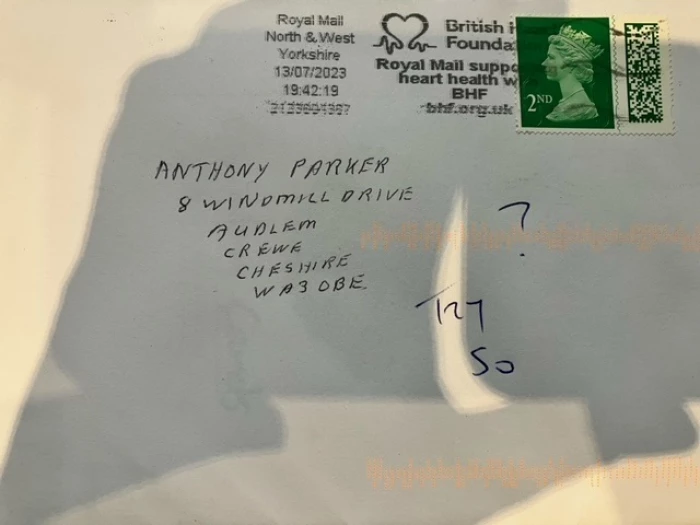 Royal Mail
North & West
Yorkshire
13/07/2023
19:42:19
British
Founda
Royal Mail suppo
heart health w
BHF
bhf.org.uk
2ND
ANTHONY PARKER
8 WINDMILL DRIVE
AUDLEM
CREWE
CHESHIRE
WA3 0BE
?
TRY
50